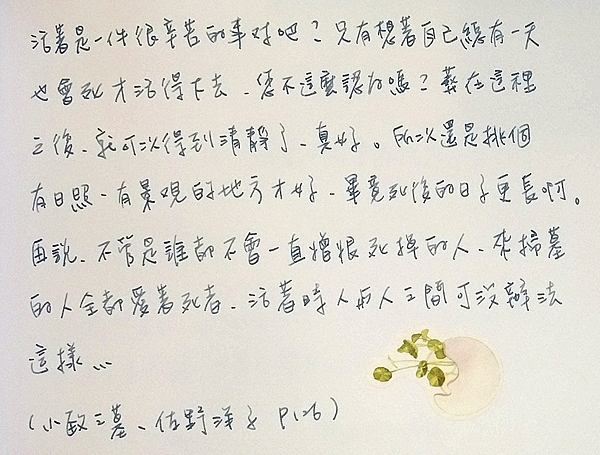 活著是一件很辛苦的事对吧？只有想著自己總有一天
也會死才活得下去、您不這麼認為嗎？葬在這裡
之後、就可以得到清靜了、真好。所以還是挑個
有日照、有景观的地方才好、畢竟死後的日子更長啊。
再說、不管是誰都不會一直憎恨死掉的人、來掃墓
的人全都愛著死者、活著時人与人之間可没辦法
這樣…
(小野洋子 P126)